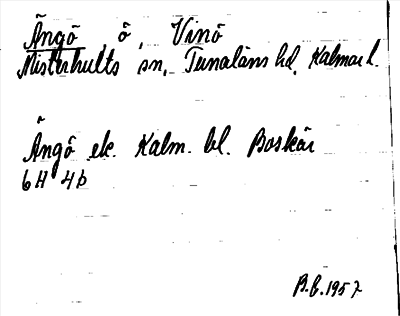 Ängö, ö, Vinö
Misterhults sn, Tunaläns hd, Kalmar l.
Ängö ek. Kalm. bl. Boskär
6H 4b
B.b. 1957